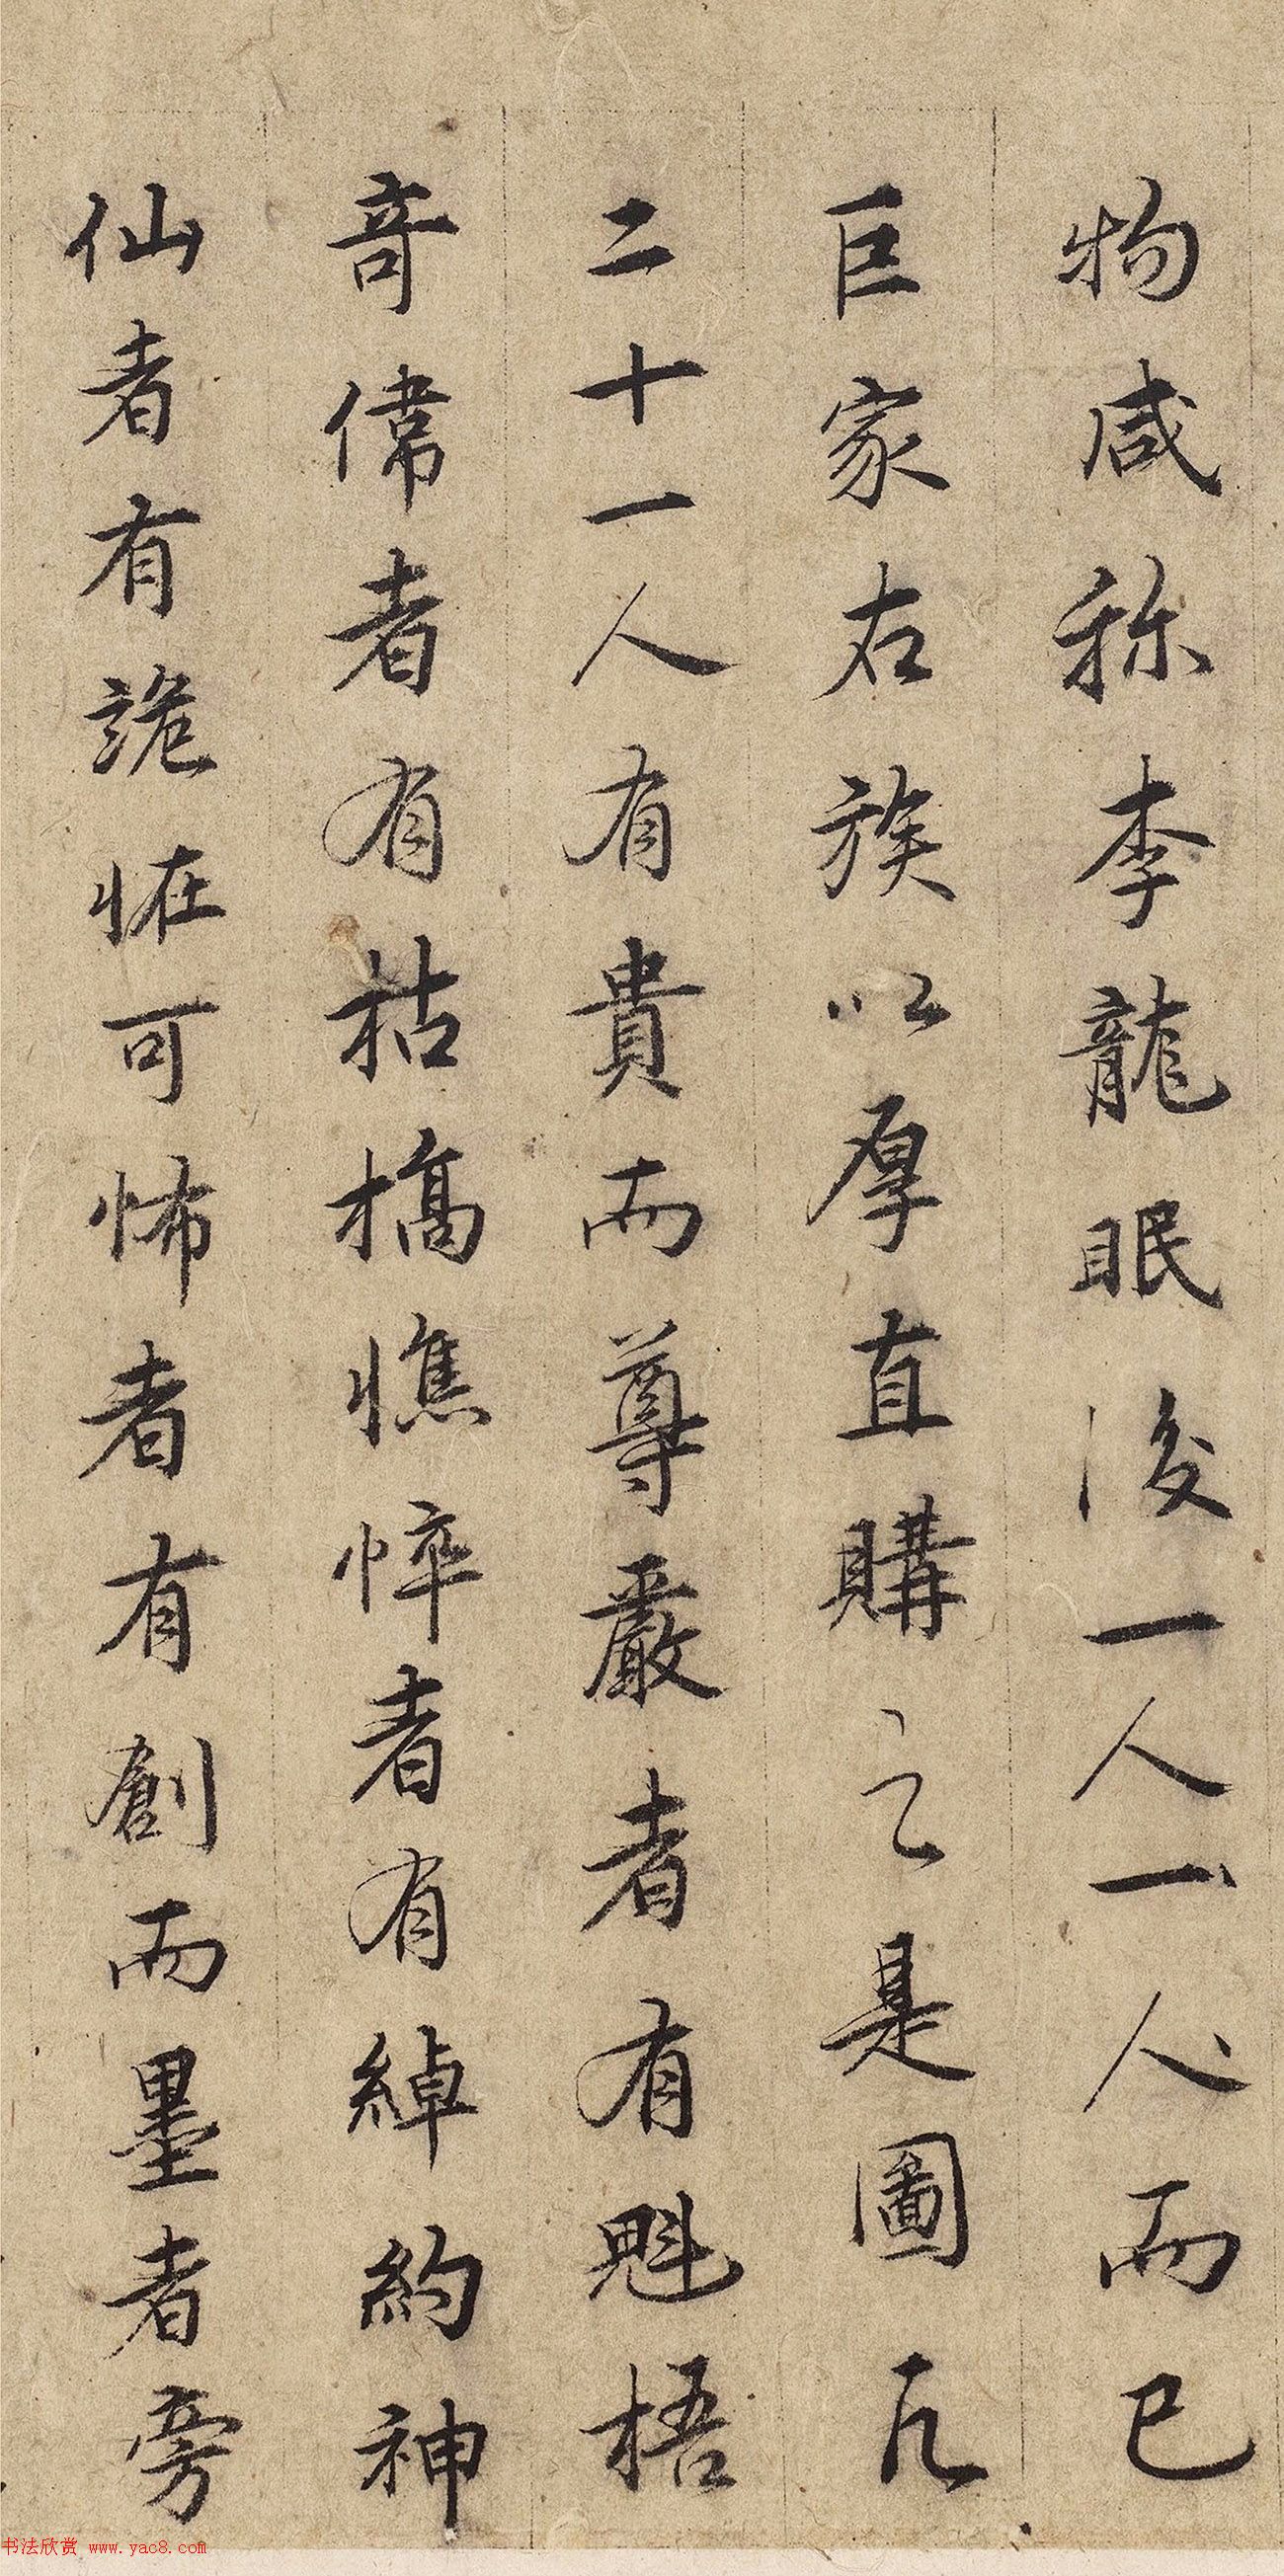 物咸称李龍眠後一人一人而已
巨家右族以厚直購之是圖凡
二十一人有貴而尊嚴者有魁梧
奇偉者有枯槁憔悴者有綽約神
仙者有詭恠可怖者有創而墨者旁
书法欣赏 www.yac8.com